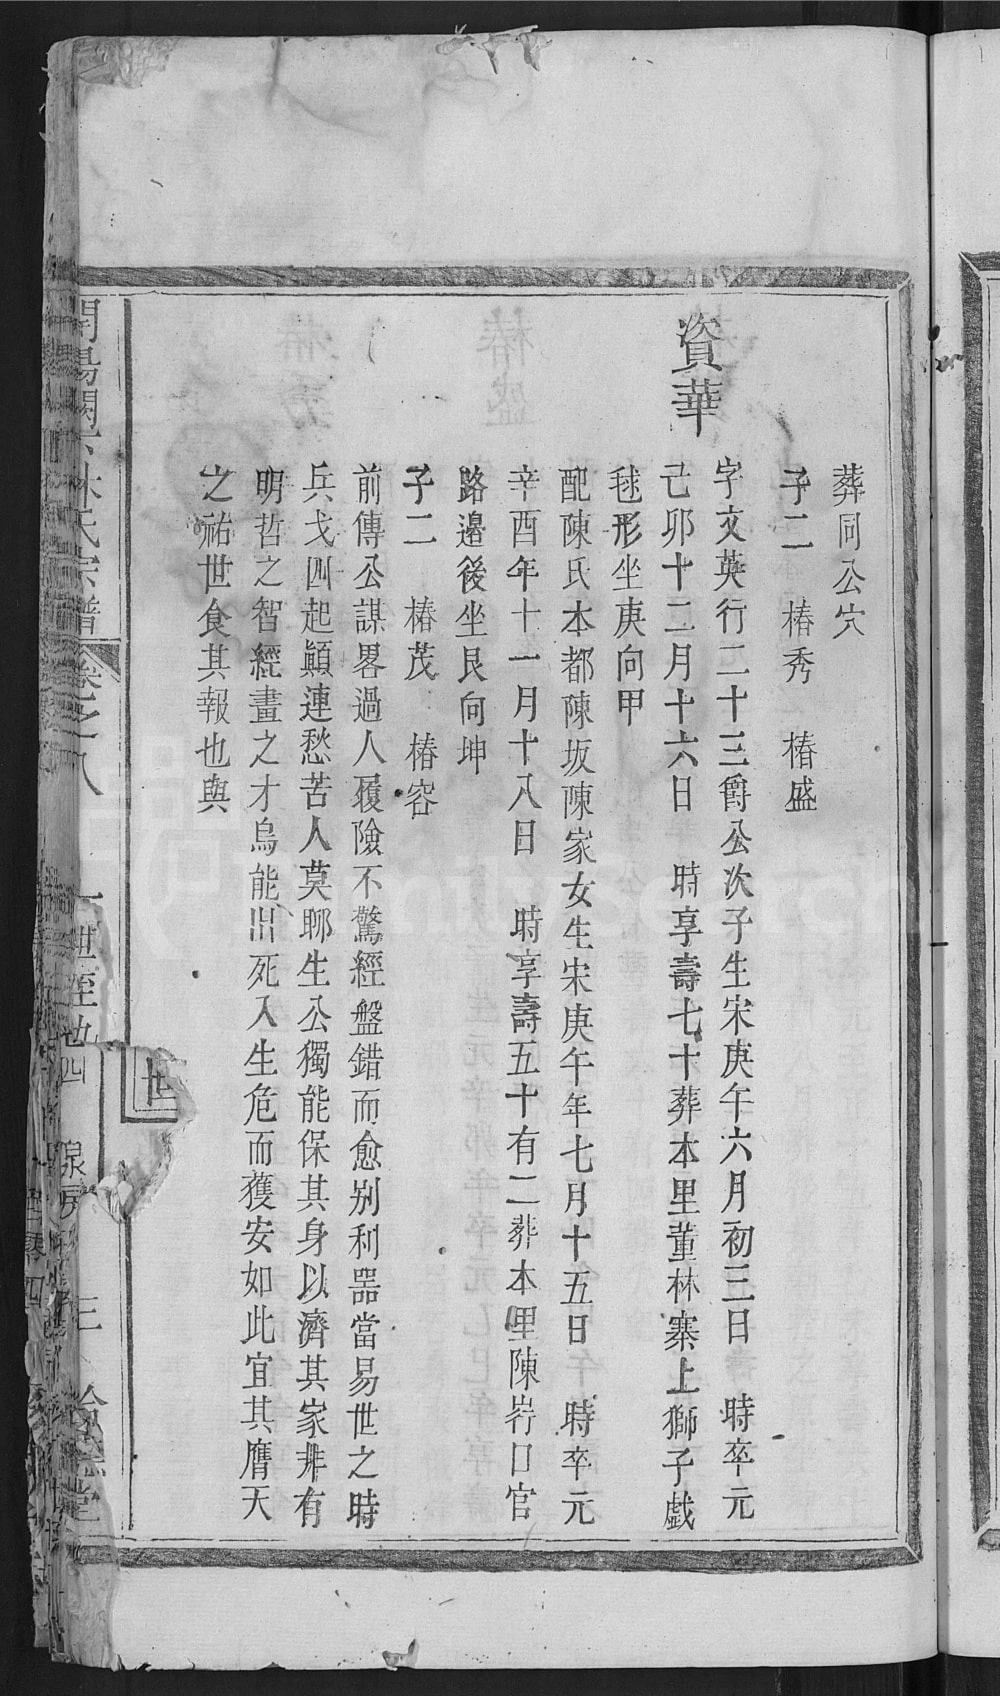 葬同公穴
子二　椿秀　椿盛
資華
字文英行二十三爵公次子生宋庚午六月初三日　時卒元
己卯十二月十六日　時享壽七十葬本里董林寨上獅子戯
毬形坐庚向甲
配陳氏本都陳坂陳家女生宋庚午年七月十五日　時卒元
辛酉年十一月十八日　時享壽五十有二葬本里陳岩口官
路邉後坐艮向坤
子二　椿茂　椿容
前傳公謀畧過人履險不驚經盤錯而愈别利噐當易世之時
兵戈四起顚連愁苦人莫聊生公獨能保其身以濟其家非有
明哲之智經畫之才烏能出死入生危而獲安如此宜其膺天
之祐世食其報也與
林氏宗譜　卷之八
世